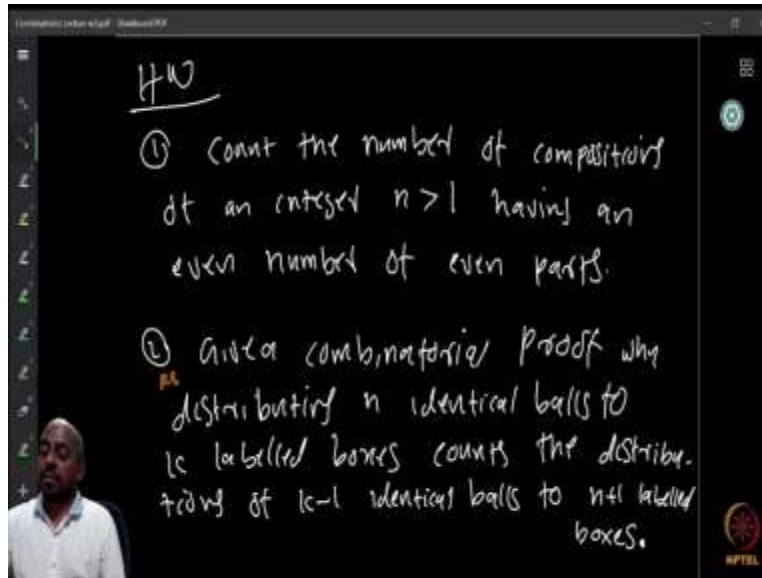 HW
① Count the number of compositions
of an integer n > 1 having an
even number of even parts.
② Give a combinatorial proof why
distributing n identical balls to
k labelled boxes counts the distribu-
tions of k-1 identical balls to n+1 labelled
boxes.
NPTEL